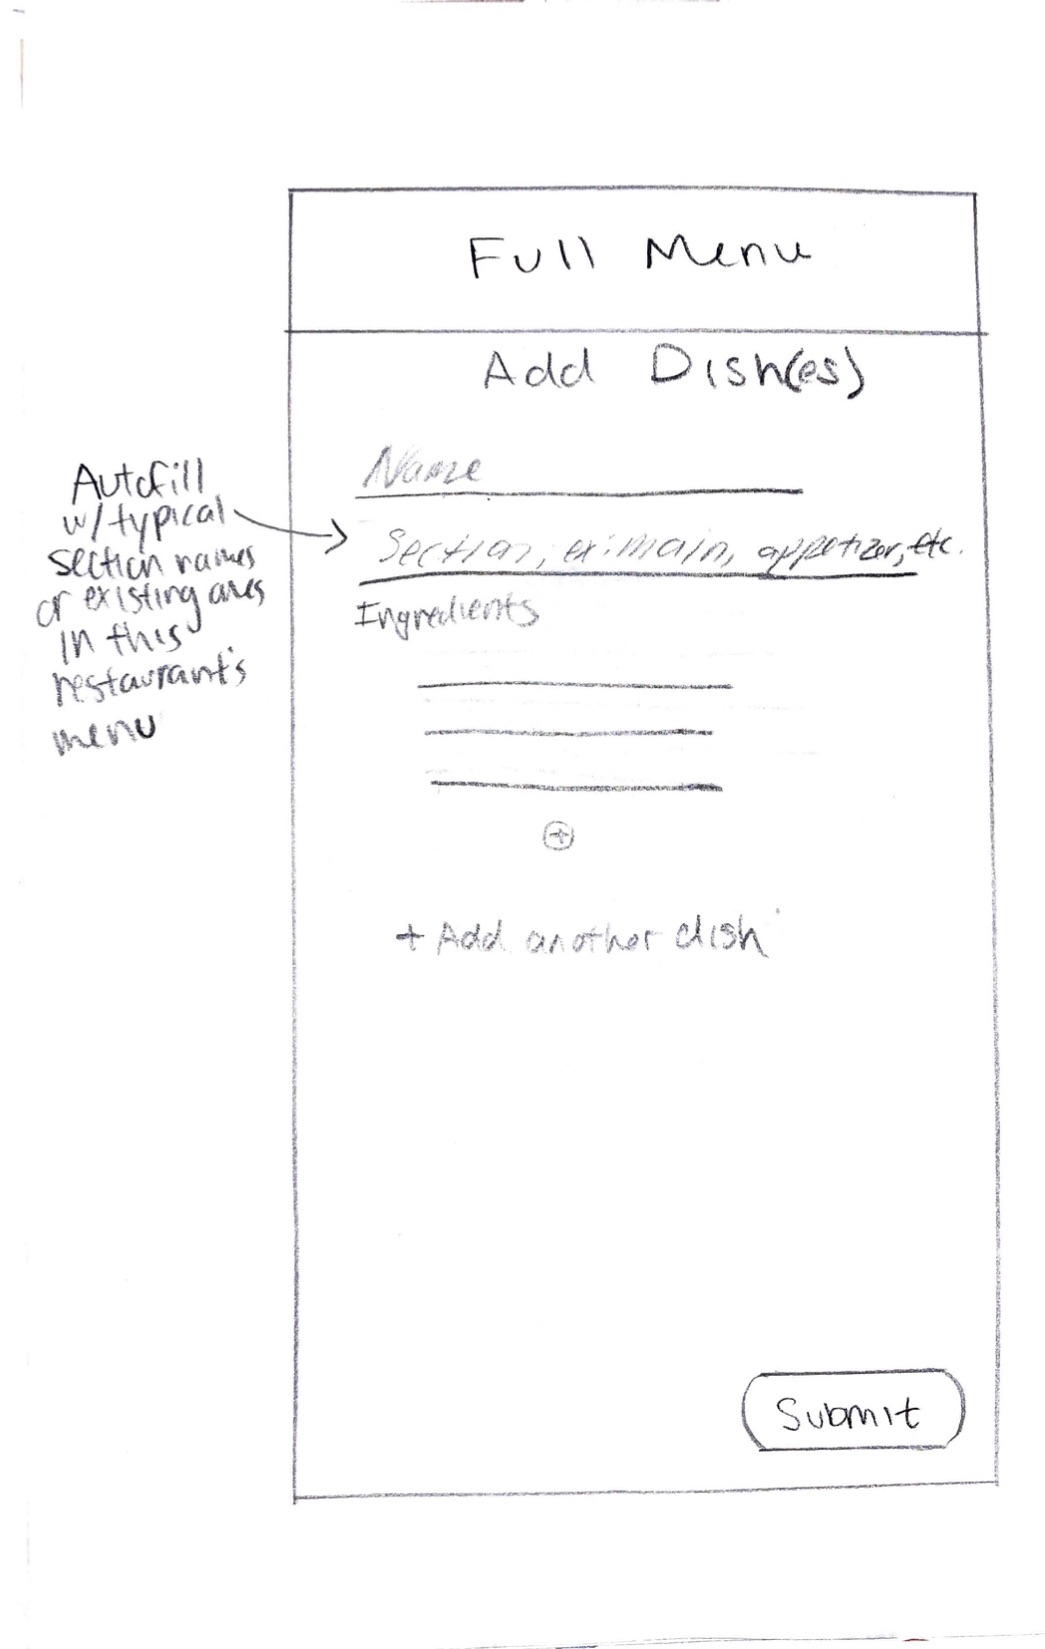 Full Menu
Add Dish(es)
Name
Section, ex: main, appetizer, etc.
Ingredients
+
+ Add another dish
Submit
Autofill
w/ typical
section names
or existing ones
in this
restaurant's
menu